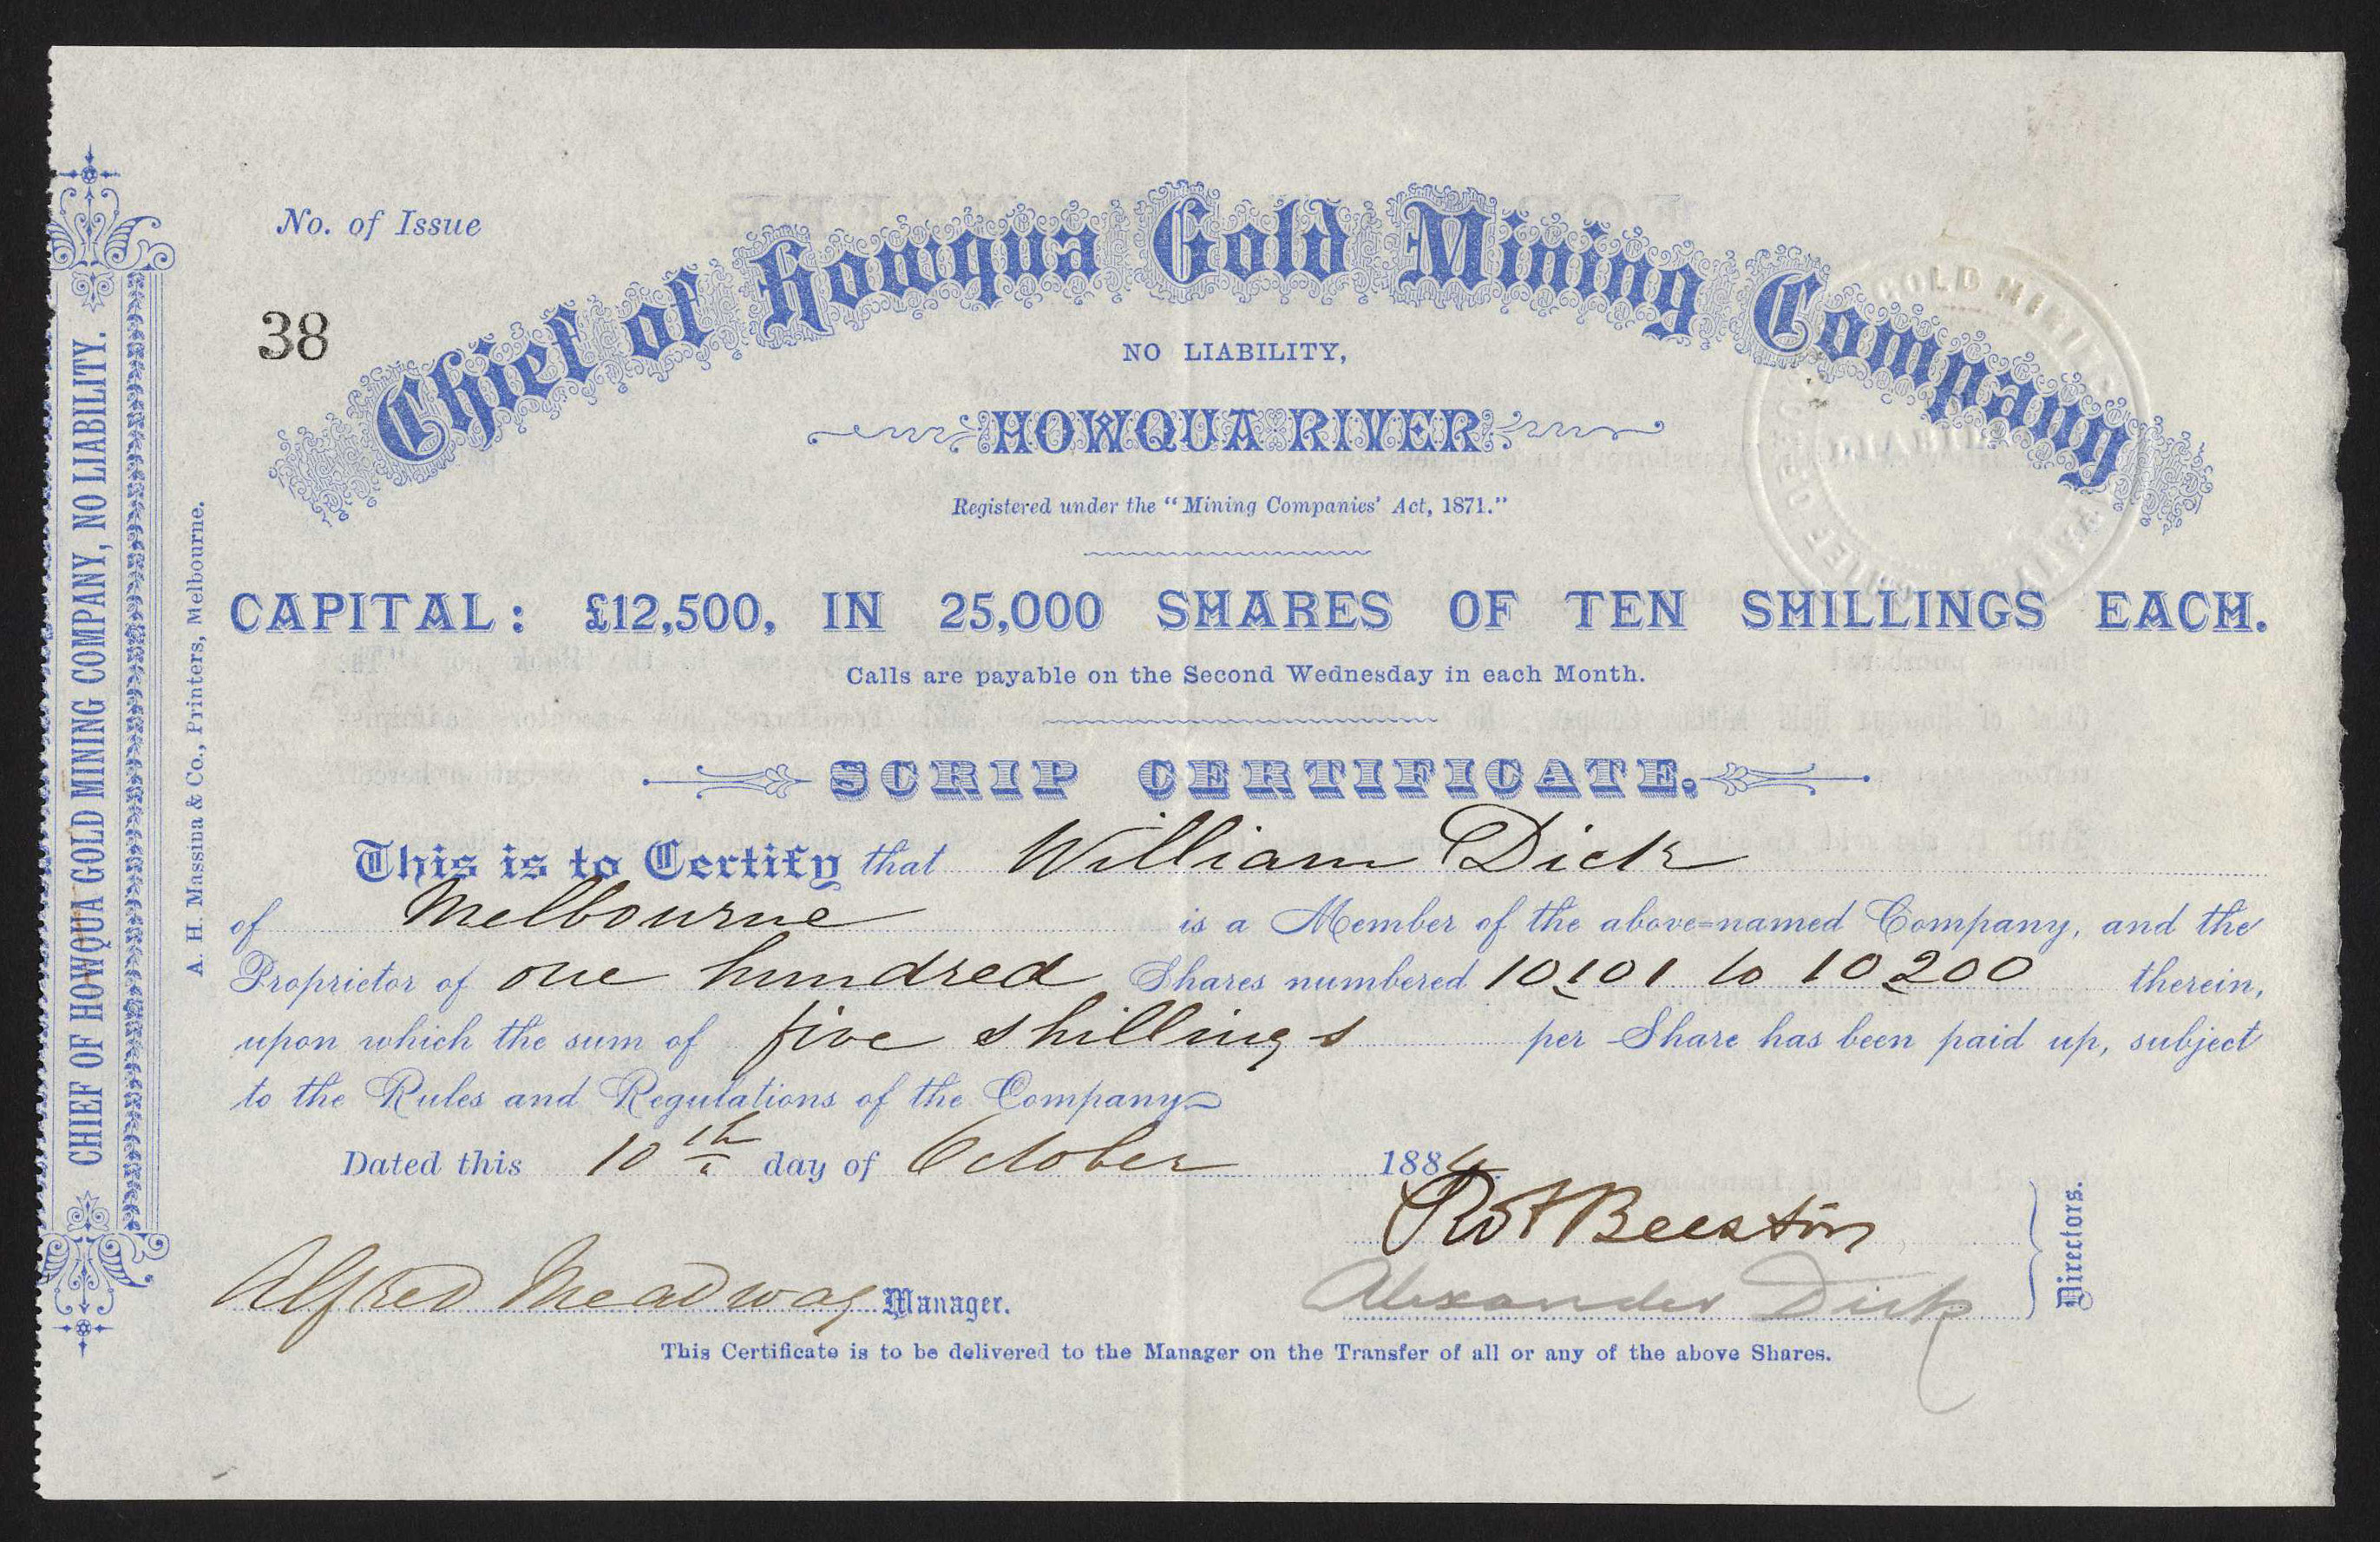 No. of Issue
38
Chief of Howqua Gold Mining Company
NO LIABILITY,
HOWQUA RIVER
Registered under the "Mining Companies' Act, 1871."
CAPITAL: £12,500, IN 25,000 SHARES OF TEN SHILLINGS EACH.
Calls are payable on the Second Wednesday in each Month.
SCRIP CERTIFICATE.
This is to Certify that William Dick
of Melbourne is a Member of the above-named Company, and the
Proprietor of one hundred Shares numbered 10101 to 10200 therein,
upon which the sum of five shillings per Share has been paid up, subject
to the Rules and Regulations of the Company
Dated this 10th day of October 188
Beeston
Alfred Meadway Manager.
Alexander Dick
Directors.
This Certificate is to be delivered to the Manager on the Transfer of all or any of the above Shares.
CHIEF OF HOWQUA GOLD MINING COMPANY, NO LIABILITY.
A. H. Massina & Co., Printers, Melbourne.
CHIEF OF GOLD MINING